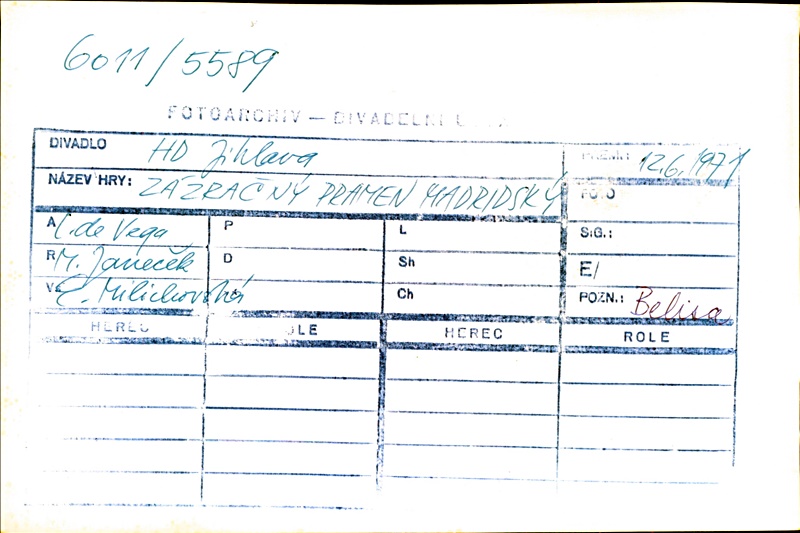 6011/5589
FOTOARCHIV — DIVADELNÍ
DIVADLO HD Jihlava PREM.: 12.6.1971
NÁZEV HRY: ZÁZRAČNÝ PRAMEN MADRIDSKÝ FOTO
A L. de Vega P L SiG.:
R M. Janeček D Sh E/
V C. Milichovská Ch POZN.: Belisa
HEREC ROLE HEREC ROLE